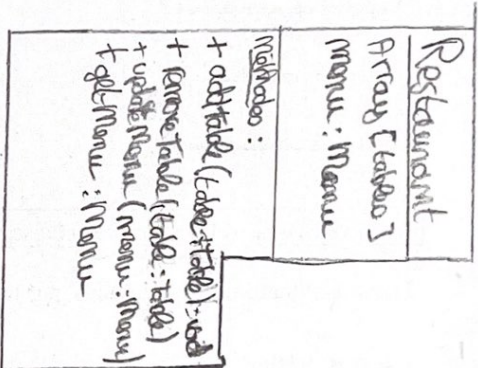 Restaurant
Array [tables]
menu : Menu
Methodes :
+ addTable (table : table) : void
+ removeTable (table : table)
+ updateMenu (menu : Menu)
+ getMenu : Menu